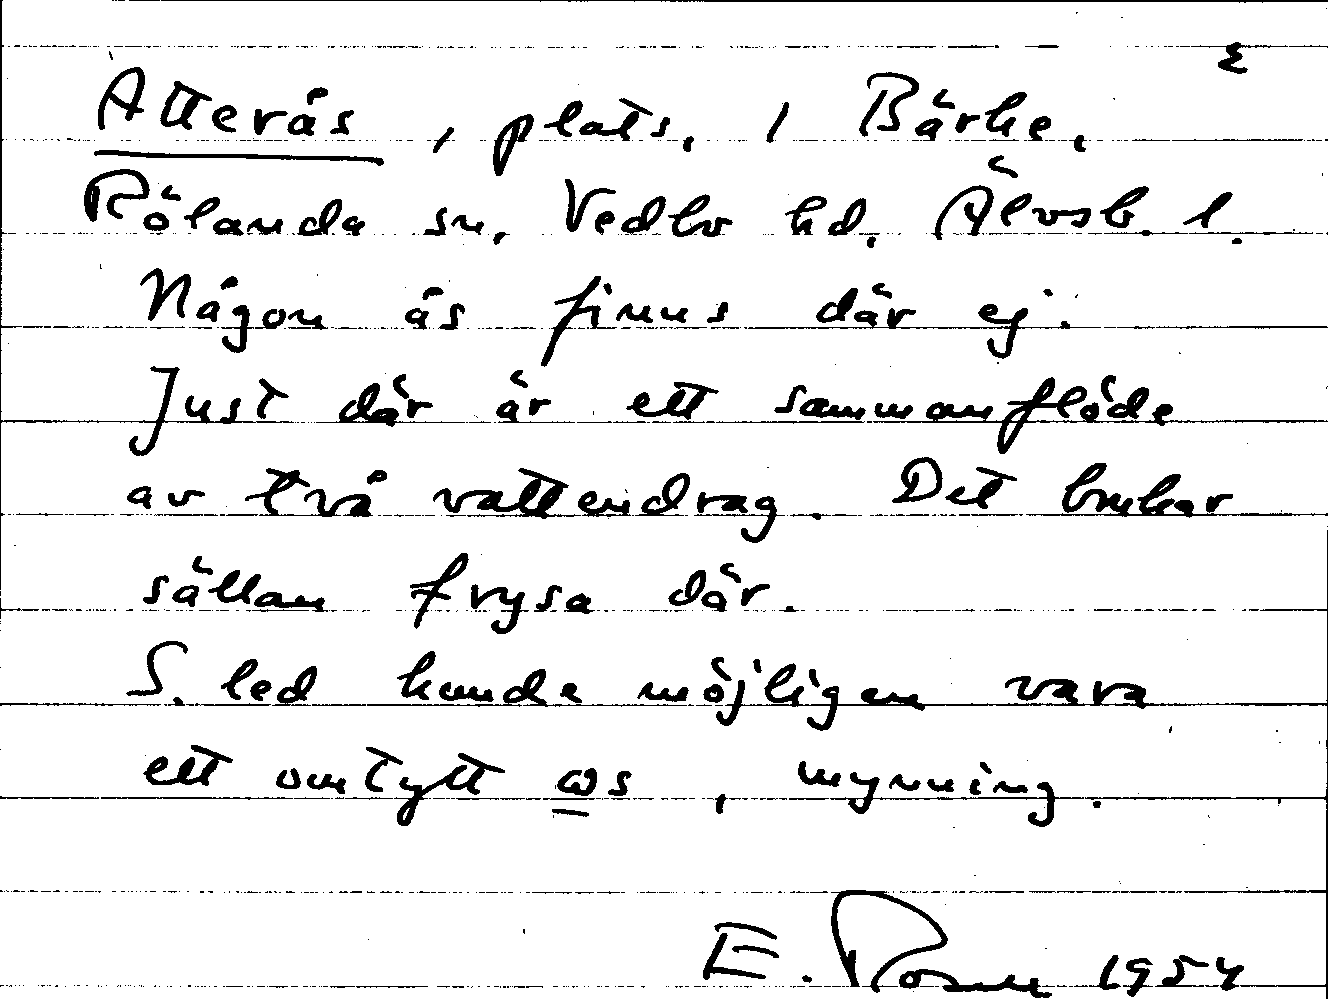 Σ
Atterås, plats, i Bärke,
Rölanda sn, Vedbo hd, Älvsb. l.
Någon ås finns där ej.
Just där är ett sammanflöde
av två vattendrag. Det brukar
sällan frysa där.
S. led kunde möjligen vara
ett omtytt ωs, mynning.
E. Rosén 1954